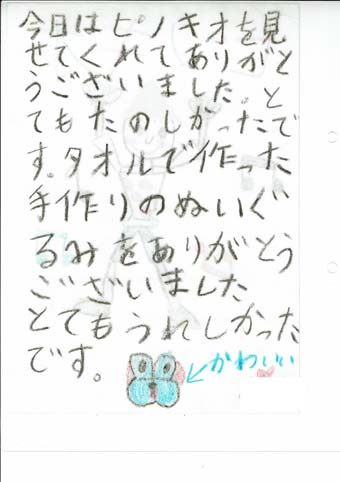 今日はピノキオを見
せてくれてありがと
うございました。と
てもたのしかったで
す。タオルで作った
手作りのぬいぐ
るみをありがとう
ございました
とてもうれしかった
です。
かわいい